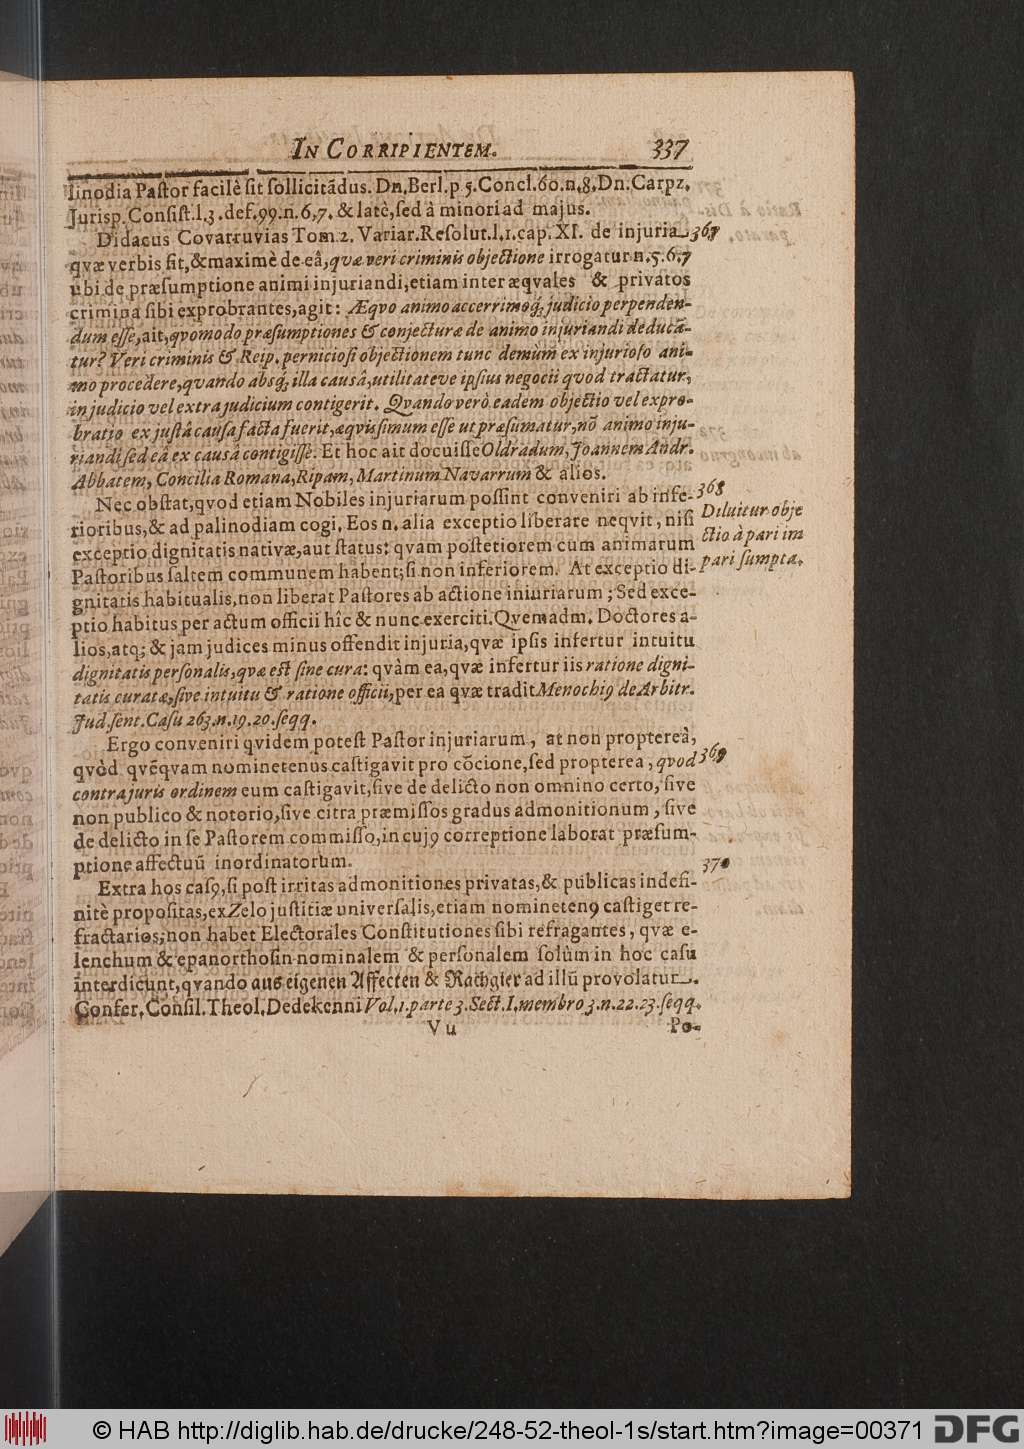 IN CORRIPIENTEM. 337
linodia Pastor facilè sit sollicitãdus. Dn, Berl. p 5. Concl. 60. n. 8. Dn. Carpz.
Jurisp. Consist. l. 3. def. 99. n. 6. 7. & latè, sed â minori ad majus.
Didacus Covarruvias Tom 2. Variar. Resolut. l. 1. cap. XI. de injuria 367
qvæ verbis fit, & maximè de eâ, qvæ veri criminis objectione irrogatur n. 5. 6. 7
ubi de præsumptione animi injuriandi, etiam inter æqvales & privatos
crimina sibi exprobrantes, agit: Æqvo animo accerrimoq; judicio perpenden-
dum esse, ait, qvomodo præsumptiones & conjecturæ de animo injuriandi deducã-
tur? Veri criminis & Reip. perniciosi objectionem tunc demùm ex injurioso ani-
mo procedere, qvando absq; illa causâ, utilitateve ipsius negocii qvod tractatur,
in judicio vel extra judicium contigerit. Qvando verò eadem objectio vel expro-
bratio ex justâ causa facta fuerit, æqvissimum esse ut præsumatur, nõ animo inju-
riandi sed eâ ex causa contigisse. Et hoc ait docuisse Oldradum, Joannem Andr.
Abbatem, Concilia Romana, Ripam, Martinum Navarrum & alios.
Nec obstat, qvod etiam Nobiles injuriarum possint conveniri ab infe- 368
rioribus, & ad palinodiam cogi. Eos n. alia exceptio liberare neqvit, nisi Diluitur obje
exceptio dignitatis nativæ, aut status: qvam postetiorem cum animarum ctio à pari im
Pastoribus saltem communem habent; si non inferiorem. At exceptio di- pari sumpta.
gnitatis habitualis, non liberat Pastores ab actione iniuriarum; Sed exce-
ptio habitus per actum officii hîc & nunc exerciti. Qvemadm. Doctores a-
lios, atq; & jam judices minus offendit injuria, qvæ ipsis infertur intuitu
dignitatis personalis, qvæ est sine cura: qvàm ea, qvæ infertur iis ratione digni-
tatis curatæ, sive intuitu & ratione officii, per ea qvæ tradit Menochiꝰ de Arbitr.
Jud. sent. Casu 263. n. 19. 20. seqq.
Ergo conveniri qvidem potest Pastor injuriarum, at non proptereà,
qvòd qvẽqvam nominetenus castigavit pro cõcione, sed propterea, qvod 369
contra juris ordinem eum castigavit, sive de delicto non omnino certo, sive
non publico & notorio, sive citra præmissos gradus admonitionum, sive
de delicto in se Pastorem commisso, in cujꝰ correptione laborat præsum-
ptione affectuũ inordinatorum. 370
Extra hos casꝰ, si post irritas admonitiones privatas, & publicas indefi-
nitè propositas, ex Zelo justitiæ universalis, etiam nominetenꝰ castiget re-
fractarios; non habet Electorales Constitutiones sibi refragantes, qvæ e-
lenchum & epanorthosin nominalem & personalem solùm in hoc casu
interdicunt, qvando aus eigenen Affecten & Rachgier ad illũ provolatur.
Confer. Consil. Theol. Dedekenni Vol. 1. parte 3. Sect. I. membro 3. n. 22. 23. seqq.
V u Po-
© HAB http://diglib.hab.de/drucke/248-52-theol-1s/start.htm?image=00371 DFG